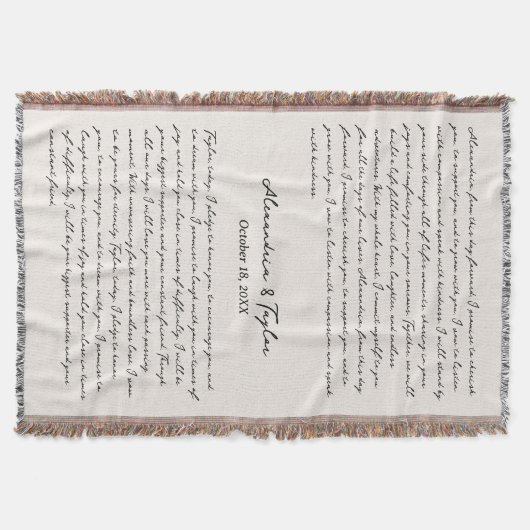 Alexandria, from this day forward, I promise to cherish
you, to support you, and to grow with you. I vow to listen
with compassion and speak with kindness. I will stand by
your side through all of life's moments, sharing in your
joys and comforting you in your sorrows. Together, we will
build a life filled with love, laughter, and endless
adventures. With my whole heart, I commit myself to you
for all the days of our lives. Alexandria, from this day
forward, I promise to cherish you, to support you, and to
grow with you. I vow to listen with compassion and speak
with kindness.
Alexandria & Taylor
October 18, 20XX
Taylor, today, I pledge to honor you, to encourage you, and
to dream with you. I promise to laugh with you in times of
joy and hold you close in times of difficulty. I will be
your biggest supporter and your constant friend. Through
all our days, I will love you more with each passing
moment. With unwavering faith and boundless love, I vow
to be yours for eternity. Taylor, today, I pledge to honor
you, to encourage you, and to dream with you. I promise to
laugh with you in times of joy and hold you close in times
of difficulty. I will be your biggest supporter and your
constant friend.